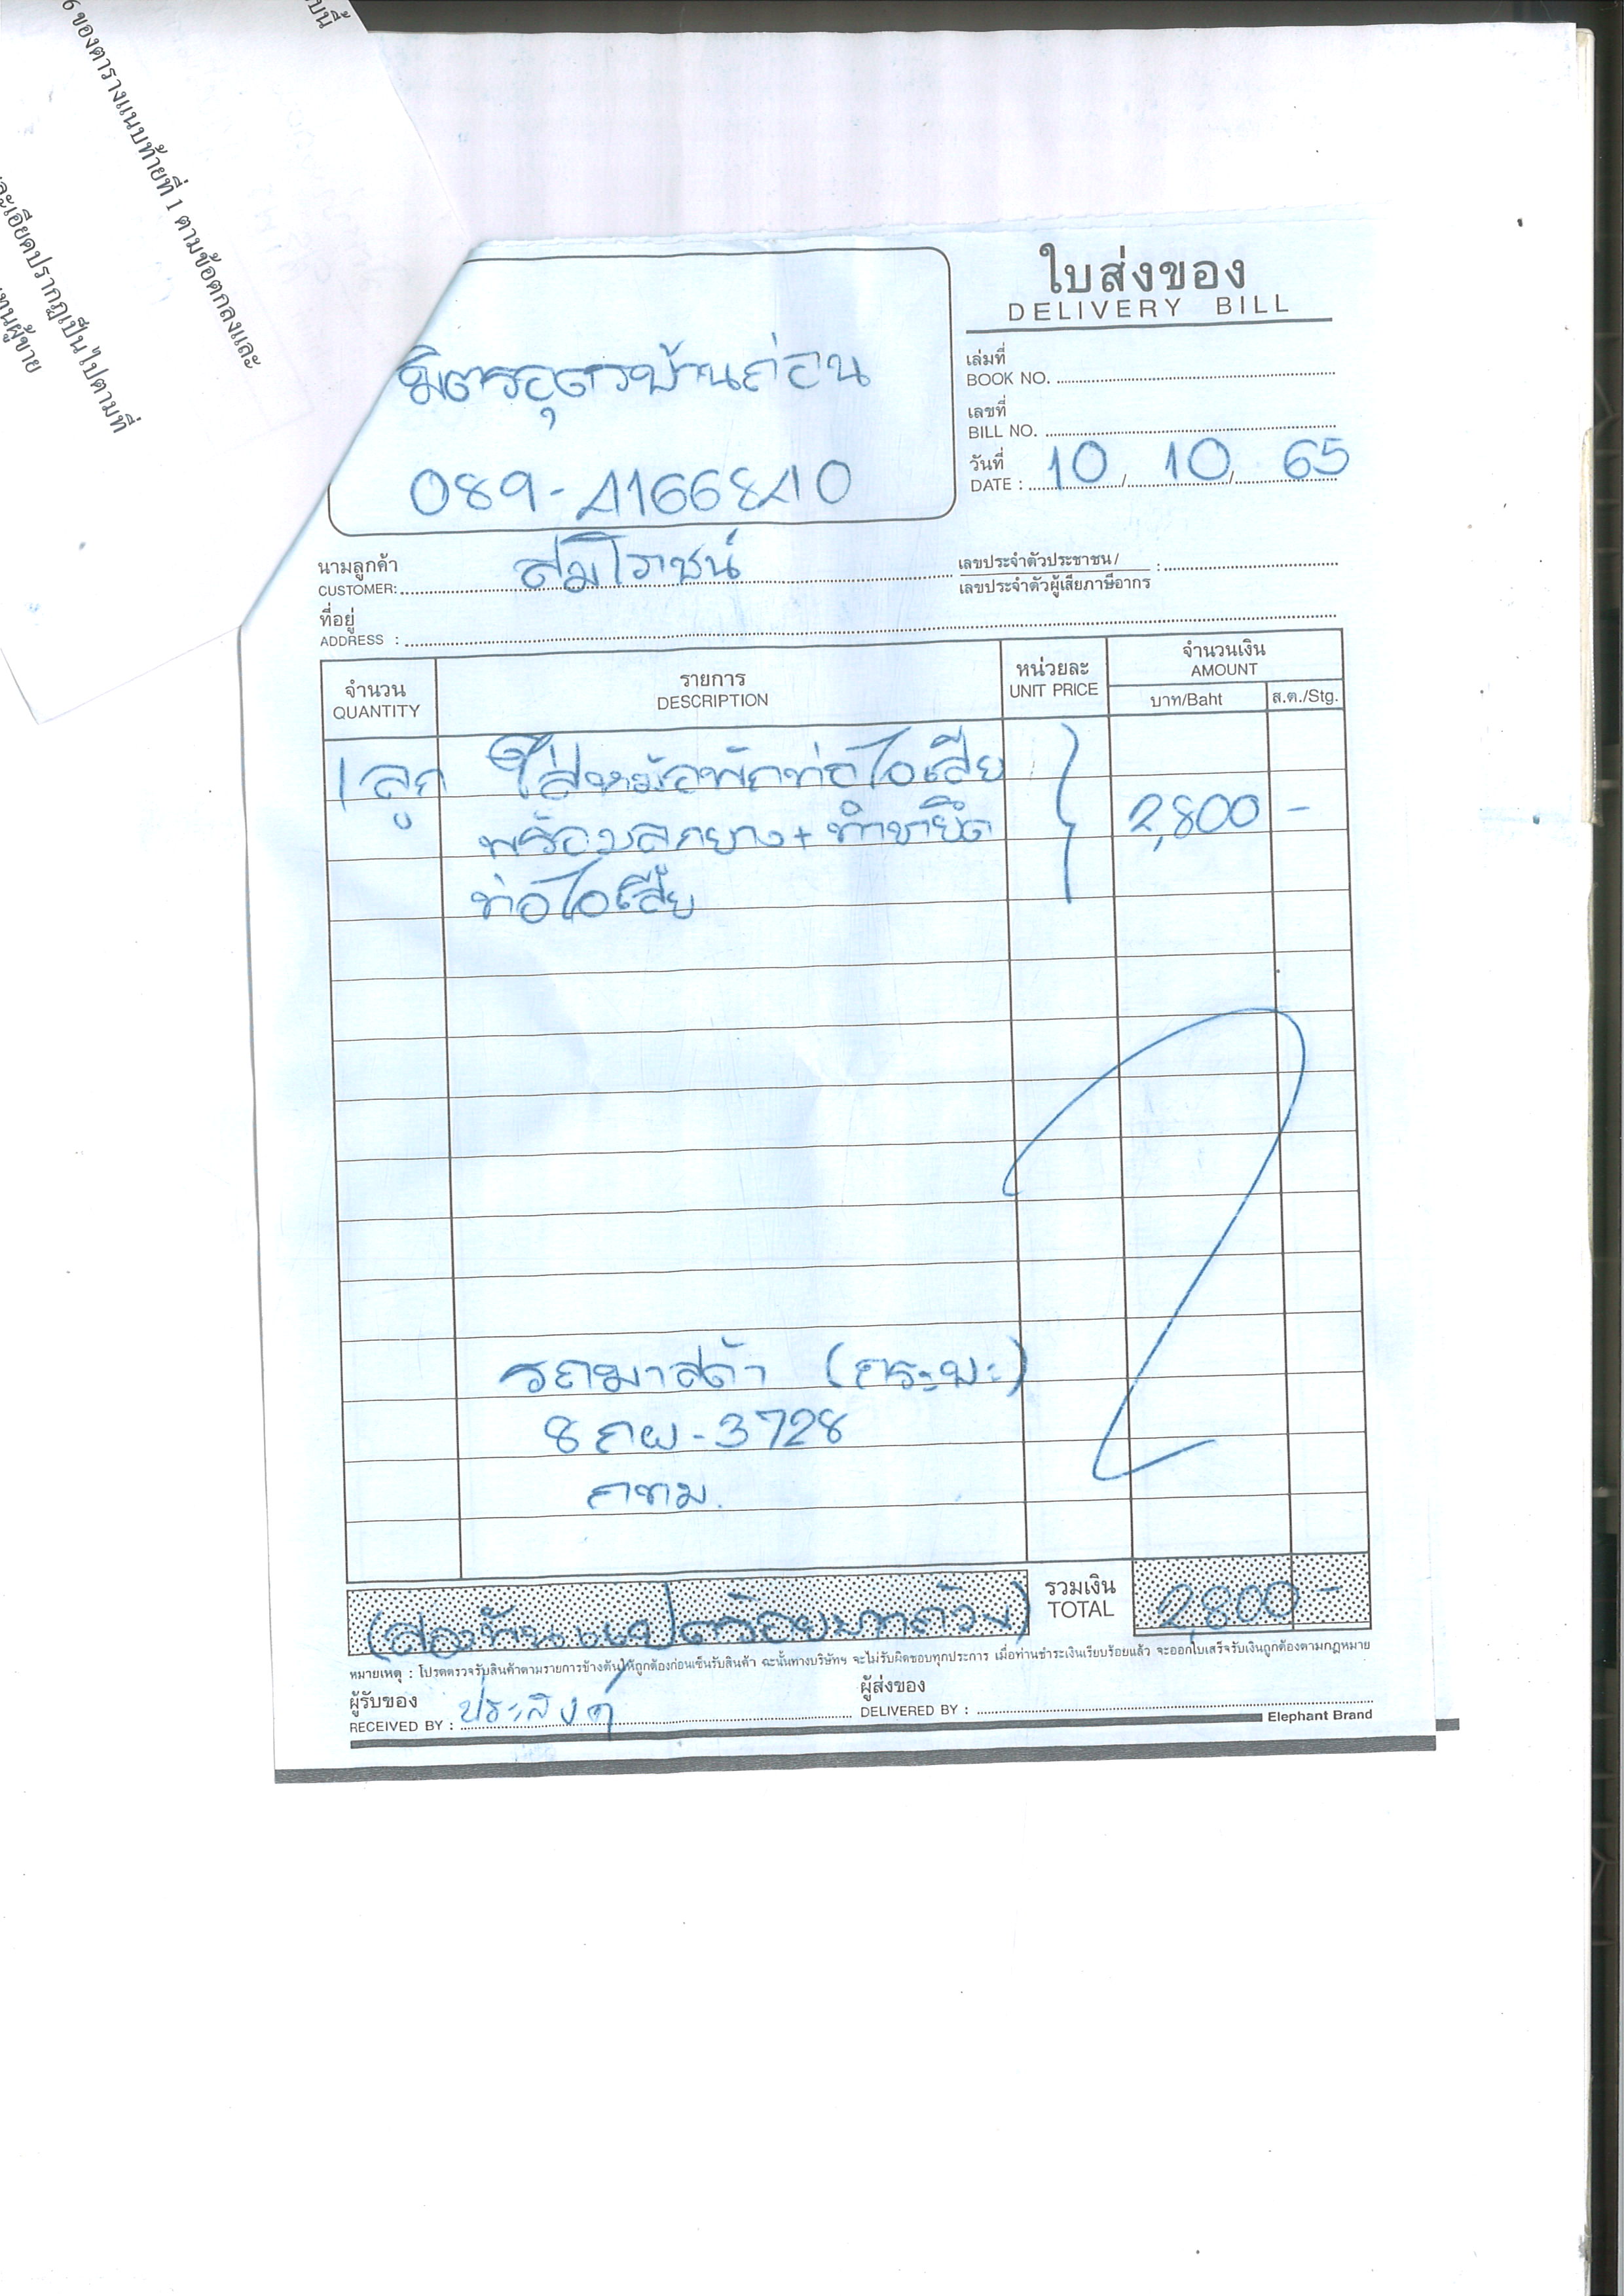 บนี้
6 ของตารางแนบท้ายที่ 1 ตามข้อตกลงและ
ละเอียดปรากฏเป็นไปตามที่
แทนผู้ขาย
ใบส่งของ
DELIVERY BILL
มิตรอุดรบ้านถ่อน
089-4166840
เล่มที่
BOOK NO.
เลขที่
BILL NO.
วันที่
DATE : 10 / 10 / 65
นามลูกค้า
CUSTOMER: สมโรชน์
เลขประจำตัวประชาชน /
เลขประจำตัวผู้เสียภาษีอากร :
ที่อยู่
ADDRESS :
จำนวน
QUANTITY
รายการ
DESCRIPTION
หน่วยละ
UNIT PRICE
จำนวนเงิน
AMOUNT
บาท/Baht ส.ต./Stg.
1 ลูก ใส่หม้อพักท่อไอเสีย
พร้อมลูกยาง + ทำขายึด 2,800 -
ท่อไอเสีย
รถมาสด้า (กระบะ)
8 กผ - 3728
กทม.
(สองพันแปดร้อยบาทถ้วน) รวมเงิน TOTAL 2,800 -
หมายเหตุ : โปรดตรวจรับสินค้าตามรายการข้างต้นให้ถูกต้องก่อนเซ็นรับสินค้า ฉะนั้นทางบริษัทฯ จะไม่รับผิดชอบทุกประการ เมื่อท่านชำระเงินเรียบร้อยแล้ว จะออกใบเสร็จรับเงินถูกต้องตามกฎหมาย
ผู้รับของ
RECEIVED BY : ประสงค์
ผู้ส่งของ
DELIVERED BY :
Elephant Brand